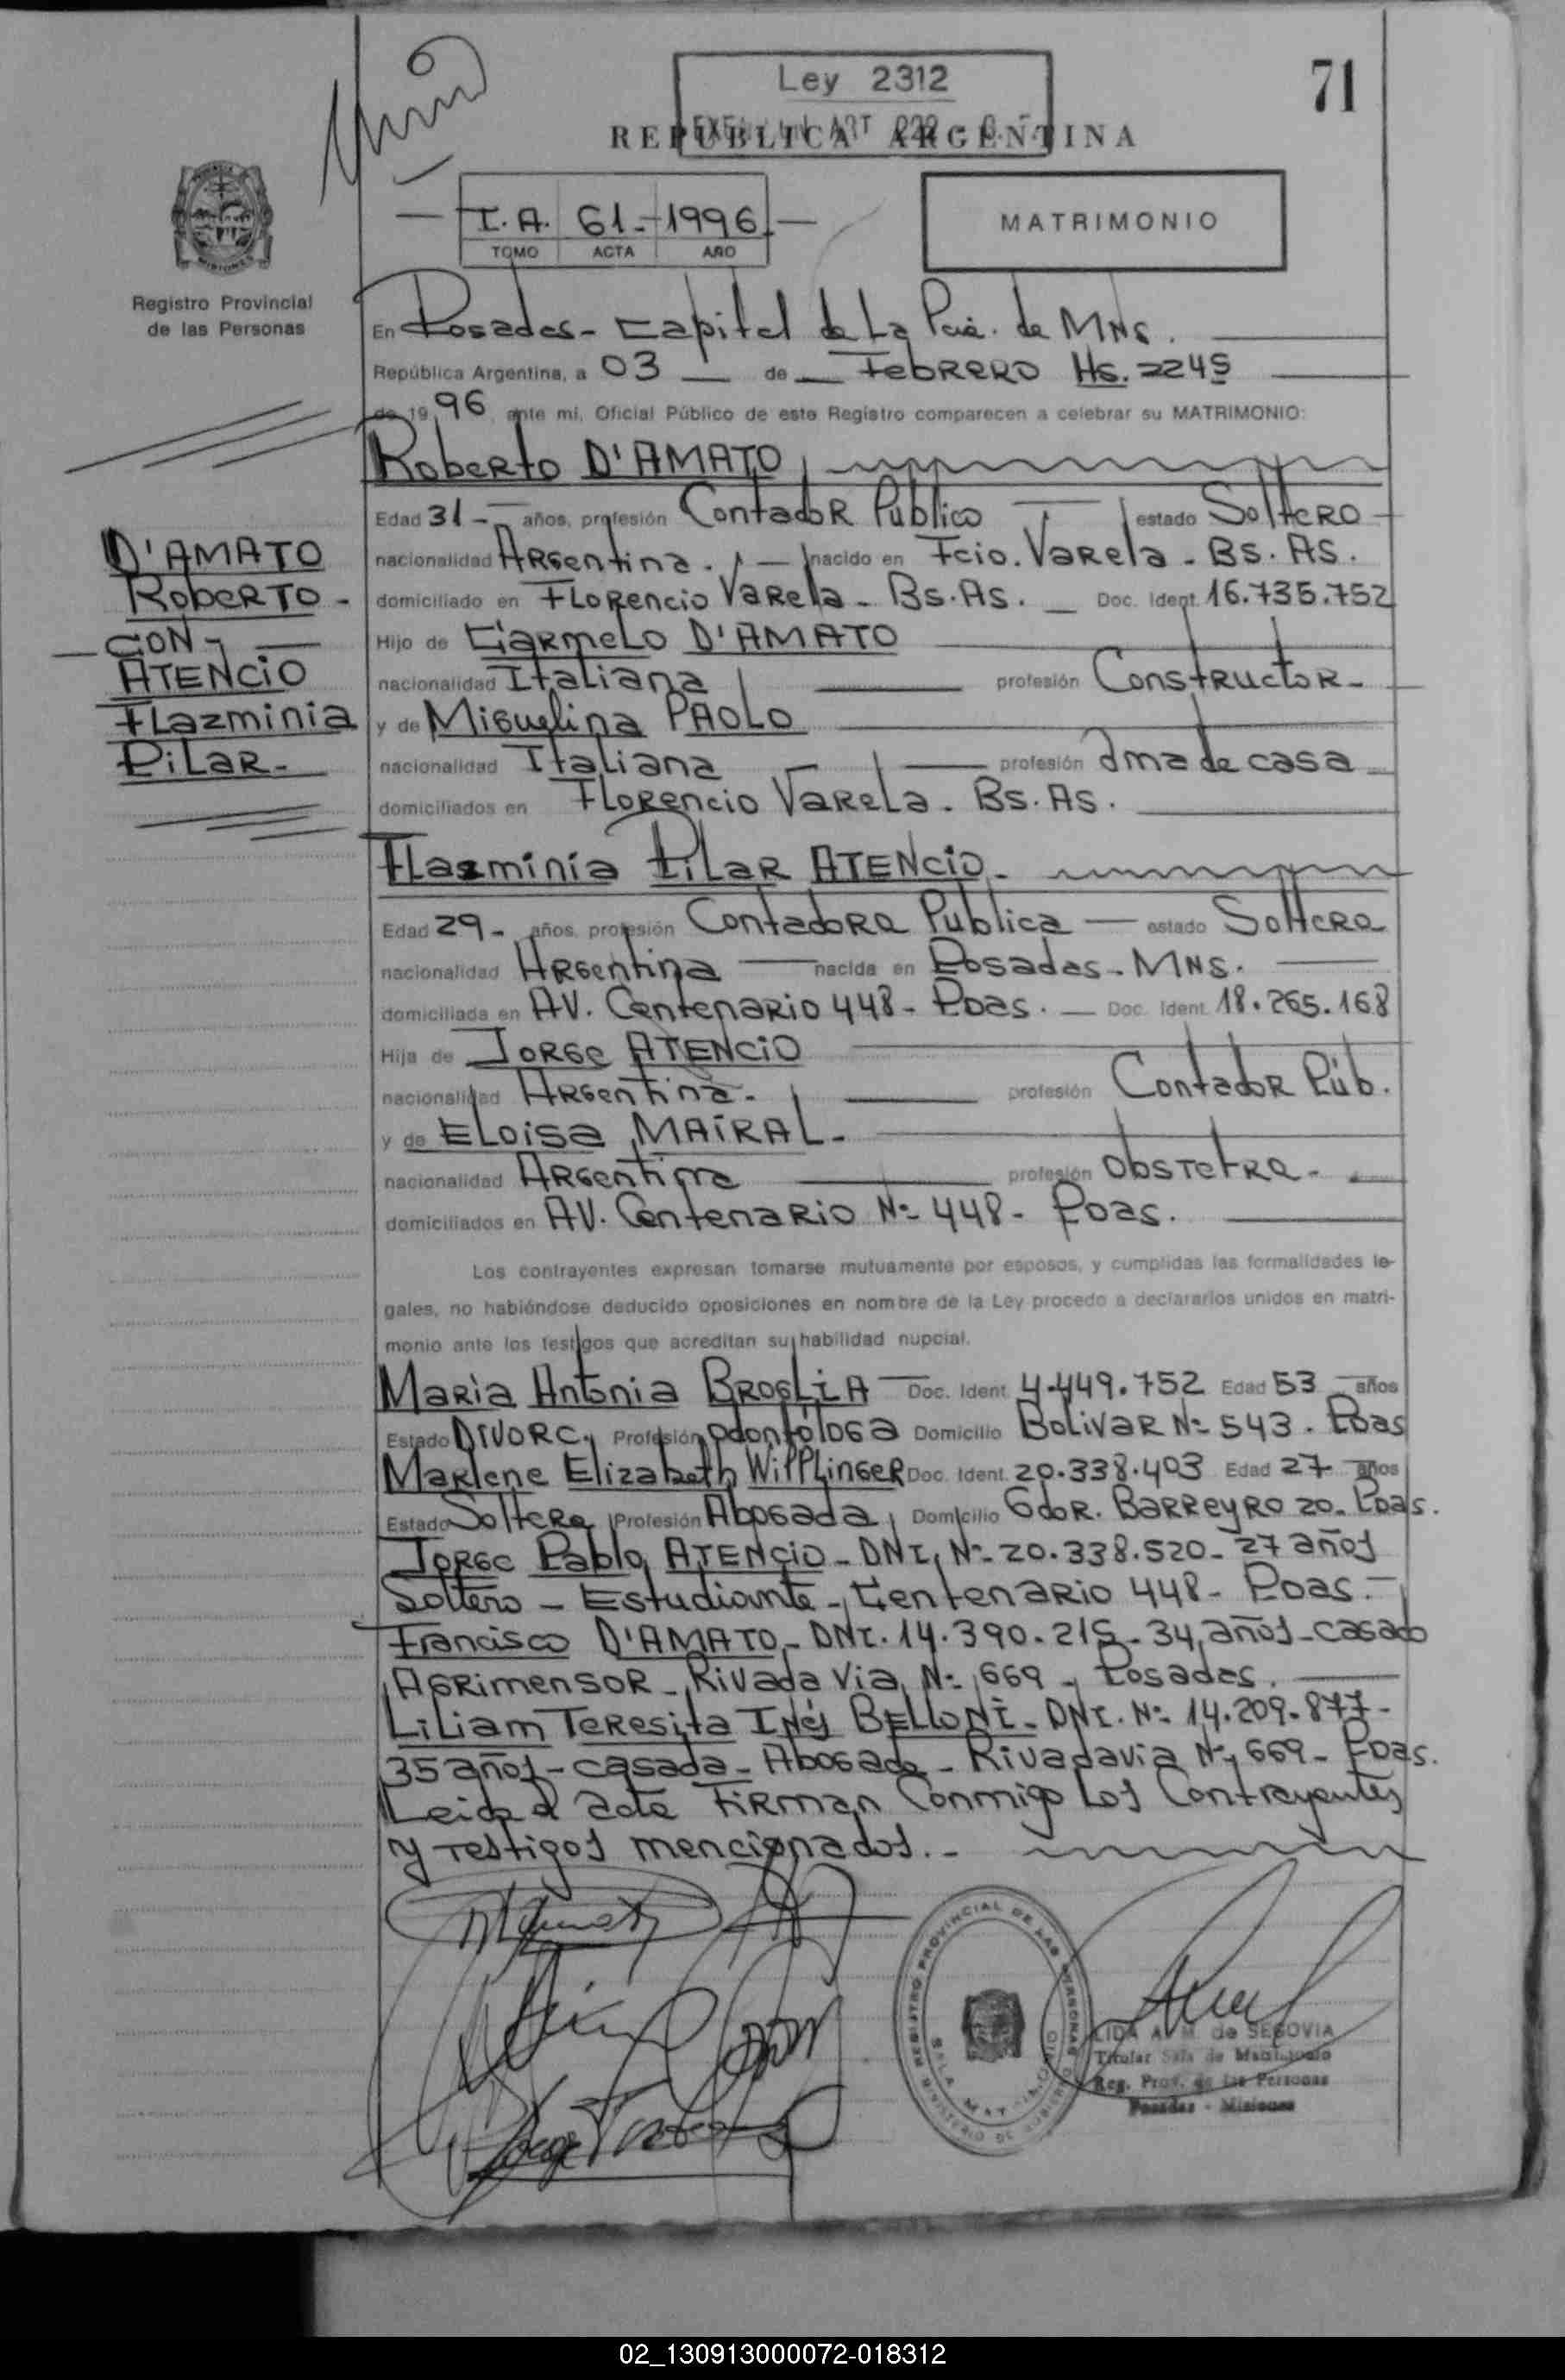 71
Ley 2312
REPUBLICA ARGENTINA
I.A. 61.- 1996.
TOMO ACTA AÑO
MATRIMONIO
MISIONES
Registro Provincial
de las Personas
En Posadas - Capital de La Pcia. de MNS.
República Argentina, a 03 de Febrero Hs. 2245
de 1996, ante mi, Oficial Público de este Registro comparecen a celebrar su MATRIMONIO:
Roberto D'AMATO
Edad 31- años, profesión Contador Público estado Soltero
nacionalidad Argentina. nacido en Fcio. Varela - Bs. As.
domiciliado en Florencio Varela - Bs. As. Doc. Ident. 16.735.752
Hijo de Carmelo D'AMATO
nacionalidad Italiana profesión Constructor-
y de Miguelina PAOLO
nacionalidad Italiana profesión Ama de casa
domiciliados en Florencio Varela - Bs. As.
D'AMATO
Roberto -
CON-
ATENCIO
Flazminia
Pilar-
Flazminia Pilar ATENCIO-
Edad 29- años, profesión Contadora Publica estado Soltera
nacionalidad Argentina nacida en Posadas - MNS.
domiciliada en AV. Centenario 448 - Pdas. Doc. Ident. 18.265.168
Hija de Jorge ATENCIO
nacionalidad Argentina- profesión Contador Púb.
y de Eloisa MAIRAL-
nacionalidad Argentina profesión Obstetra-
domiciliados en AV. Centenario Nº 448 - Pdas.
Los contrayentes expresan tomarse mutuamente por esposos, y cumplidas las formalidades le-
gales, no habiéndose deducido oposiciones en nombre de la Ley procedo a declararlos unidos en matri-
monio ante los testigos que acreditan su habilidad nupcial.
Maria Antonia BROGLIA Doc. Ident. 4.449.752 Edad 53 años
Estado Divorc. Profesión Odontóloga Domicilio Bolivar Nº 543. Pdas
Marlene Elizabeth WIPPLINGER Doc. Ident. 20.338.403 Edad 27 años
Estado Soltera Profesión Abogada Domicilio Gdor. Barreyro 20- Pdas.
Jorge Pablo ATENCIO - DNI. Nº 20.338.520 - 27 años
Soltero - Estudiante - Centenario 448 - Pdas.-
Francisco D'AMATO - DNI. 14.390.215 - 34 años - casado
Agrimensor - Rivadavia Nº 669 - Posadas.
Liliam Teresita Inés BELLONI - DNI. Nº 14.209.877-
35 años - casada - Abogada - Rivadavia Nº 669 - Pdas.
Leida el acta Firman Conmigo Los Contrayentes
y testigos mencionados.-
REGISTRO PROVINCIAL DE LAS PERSONAS
LIDA A. M. de SEGOVIA
Titular Sala de Matrimonio
Reg. Prov. de las Personas
Posadas - Misiones
02_130913000072-018312